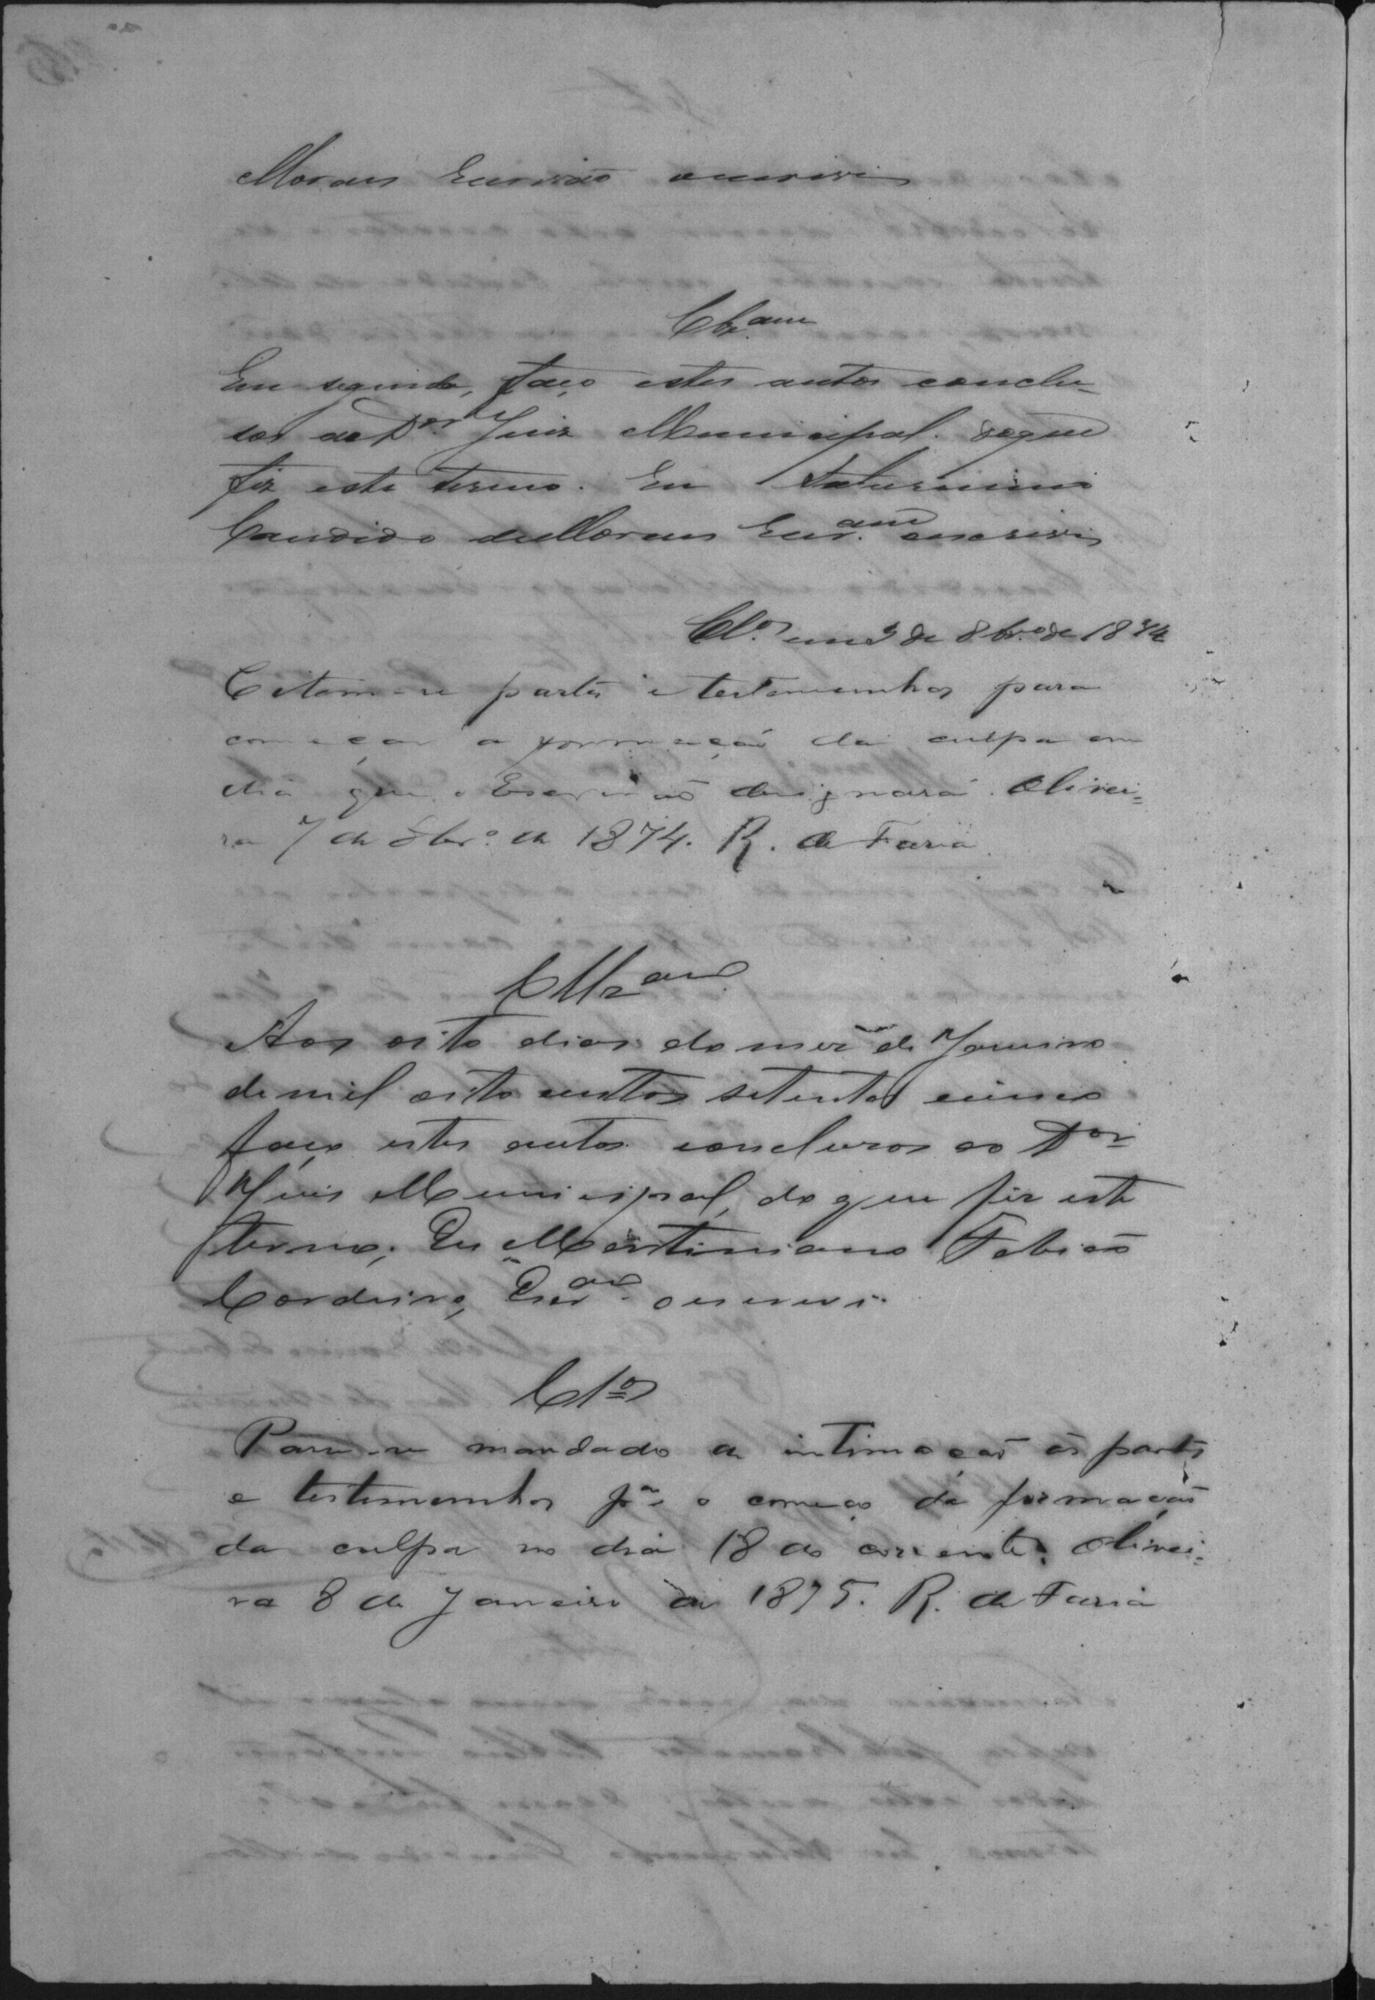 Moraes Escrivão o escrivi
Clz.am
Em seguida, faço estes autos conclu-
sos ao D.or Juiz Municipal. do que
fiz este termo. Eu Saturnino
Candido de Moraes Escr.am o escrivi
Cl.os em 3 de 8br.o de 1874
Citem-se partes e testemunhas para
começar a formação da culpa em
dia que o Escrivão designará. Olivei=
ra 7 de 8br.o de 1874. R. de Faria
Cllz.am
Aos oito dias do mez de Janeiro
de mil oito centos setenta e cinco
faço estes autos conclusos ao D.or
Juis Municipal, do que fiz este
termo; Eu Martiniano Fabião
Cordeiro, Escr.am o escrevi.
Cl.os
Passe-se mandado de intimação ás partes
e testemunhas p.a o começo da formação
da culpa no dia 18 do corrente. Olivei=
ra 8 de Janeiro de 1875. R. de Faria